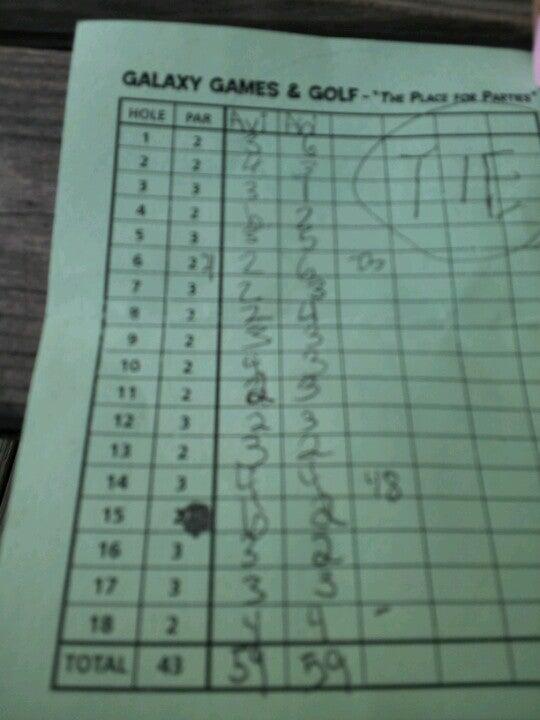 GALAXY GAMES & GOLF - "THE PLACE FOR PARTIES"
HOLE PAR
1 2 3 6
2 2
3 3 3 1
4 2 2
5 3 5
6 2 6
7 3 2 3
8 2 2 4
9 2 3
10 2 3
11 2 2 3
12 3 2 3
13 2 3 2
14 3 4 4 48
15 2
16 3 3 2
17 3 3 3
18 2 4 4 -
TOTAL 43 59 59
TIE